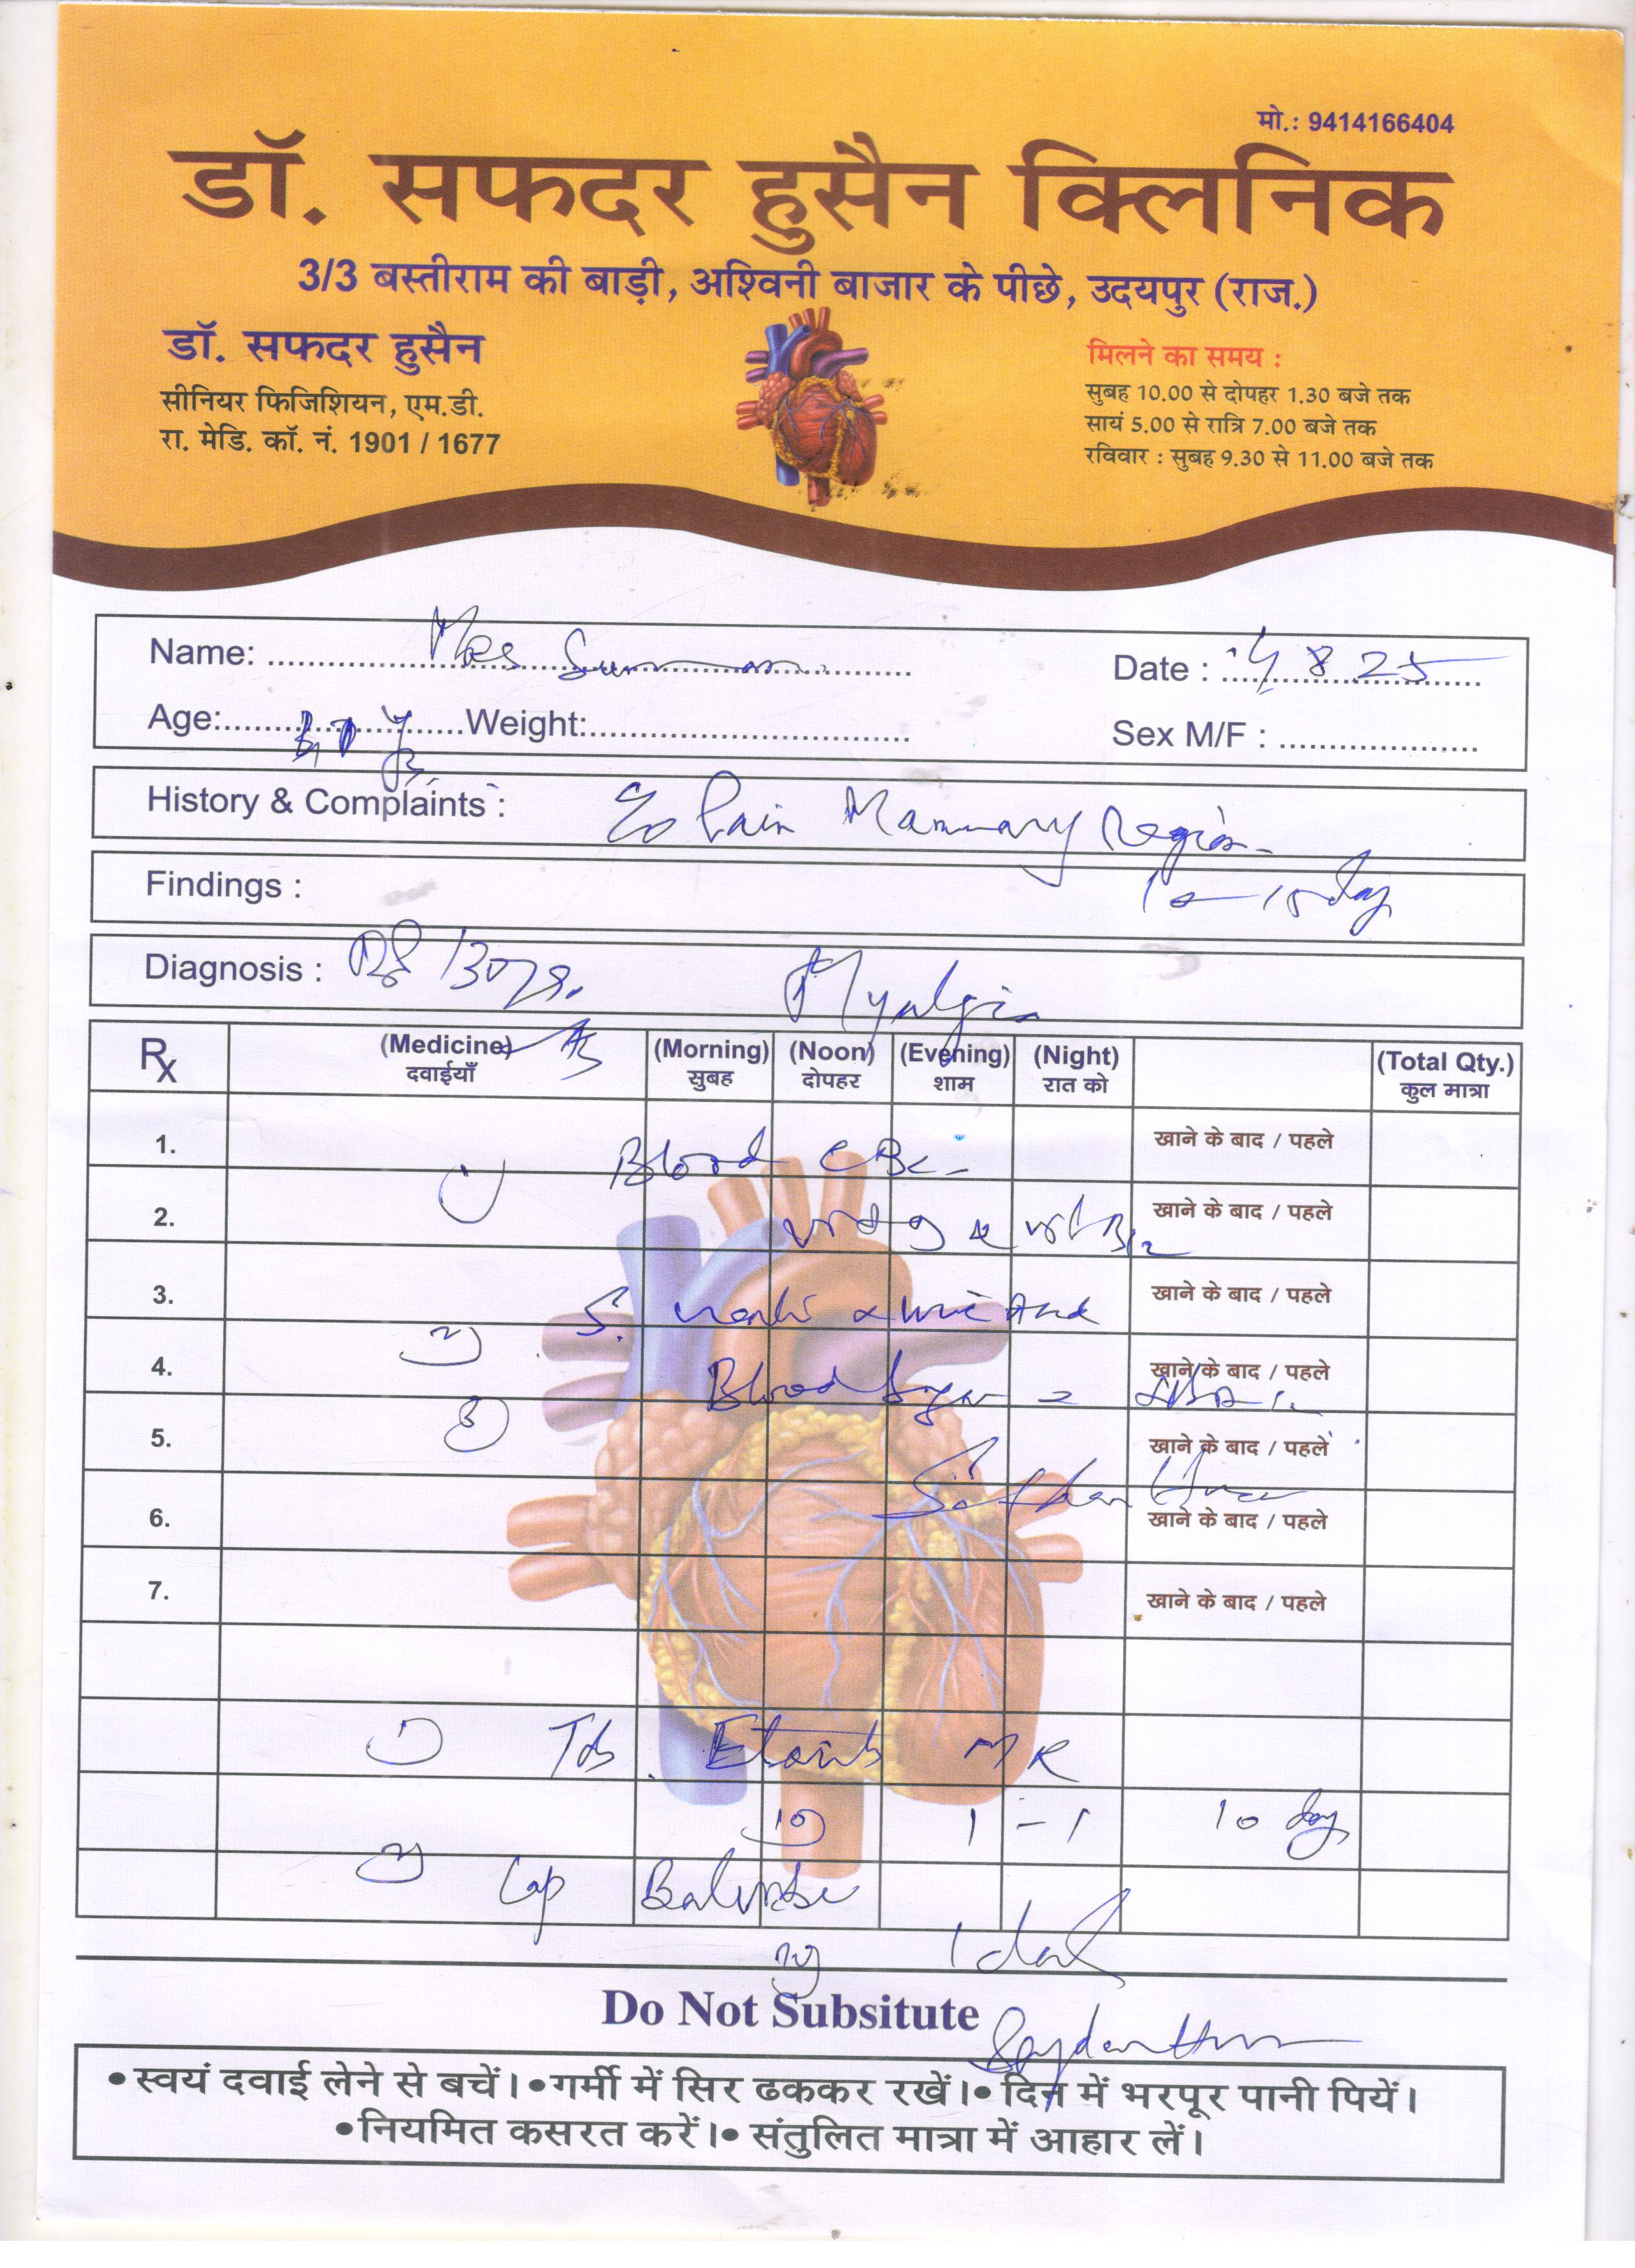 मो.: 9414166404
डॉ. सफदर हुसैन क्लिनिक
3/3 बस्तीराम की बाड़ी, अश्विनी बाजार के पीछे, उदयपुर (राज.)
डॉ. सफदर हुसैन
सीनियर फिजिशियन, एम.डी.
रा. मेडि. कॉ. नं. 1901 / 1677
मिलने का समय :
सुबह 10.00 से दोपहर 1.30 बजे तक
सायं 5.00 से रात्रि 7.00 बजे तक
रविवार : सुबह 9.30 से 11.00 बजे तक
Name: Mrs Suman
Date : 4 8 25
Age: Weight:
Sex M/F :
History & Complaints : Pain Mammary Region
Findings : day
Diagnosis : Myalgia
Rx (Medicine) (Morning) (Noon) (Evening) (Night) (Total Qty.)
दवाईयाँ सुबह दोपहर शाम रात को कुल मात्रा
1. खाने के बाद / पहले
1) Blood CBC
2. खाने के बाद / पहले
B12
3. खाने के बाद / पहले
2) S.
4. खाने के बाद / पहले
3) Blood Sugar
5. खाने के बाद / पहले
6. खाने के बाद / पहले
7. खाने के बाद / पहले
1) Tab. MR
10 1 - 1 10 day
2) Cap
Do Not Subsitute
• स्वयं दवाई लेने से बचें। • गर्मी में सिर ढककर रखें। • दिन में भरपूर पानी पियें।
• नियमित कसरत करें। • संतुलित मात्रा में आहार लें।